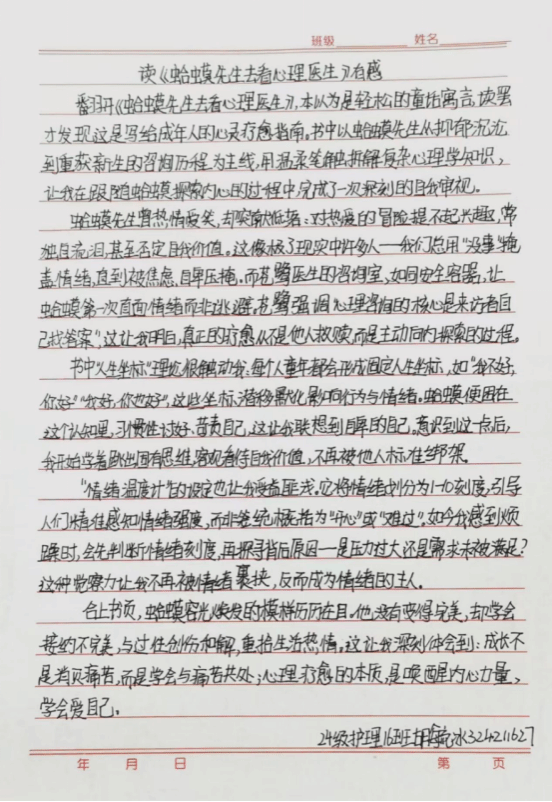 班级 姓名
读《蛤蟆先生去看心理医生》有感
翻开《蛤蟆先生去看心理医生》,本以为是轻松的童话寓言,读罢
才发现这是写给成年人的心灵疗愈指南。书中以蛤蟆先生从抑郁沉沦
到重获新生的咨询历程为主线,用温柔笔触拆解复杂心理学知识,
让我在跟随蛤蟆探索内心的过程中,完成了一次深刻的自我审视。
蛤蟆先生曾热情爱笑,却突然低落:对热爱的冒险提不起兴趣,常
独自流泪,甚至否定自我价值。这像极了现实中许多人——我们总用“没事”掩
盖情绪,直到被焦虑、自卑压垮。而苍鹭医生的咨询室,如同安全容器,让
蛤蟆第一次直面情绪而非逃避,苍鹭强调“心理咨询的核心是来访者自
己找答案”,这让我明白,真正的疗愈从不是他人救赎,而是主动向内探索的过程。
书中“人生坐标”理论很触动我:每个人童年都会形成固定人生坐标,如“我不好,
你好”“我好,你也好”,这些坐标潜移默化影响行为与情绪。蛤蟆便困在
这个认知里,习惯性讨好、苛责自己,这让我联想到自卑的自己。意识到这一点后,
我开始尝着跳出固有思维,客观看待自我价值,不再被他人标准绑架。
“情绪温度计”的设定也让我受益匪浅。它将情绪划分为1-10刻度,引导
人们精准感知情绪强度,而非笼统概括为“开心”或“难过”。如今我感到烦
躁时,会先判断情绪刻度,再探寻背后原因—是压力过大还是需求未被满足?
这种觉察力让我不再被情绪裹挟,反而成为情绪的主人。
合上书页,蛤蟆容光焕发的模样历历在目。他没有变得完美,却学会
接纳不完美,与过往创伤和解,重拾生活热情。这让我深刻体会到:成长不
是消灭痛苦,而是学会与痛苦共处;心理疗愈的本质,是唤醒内心力量,
学会爱自己。
24级护理16班 324211627
年 月 日 第 页